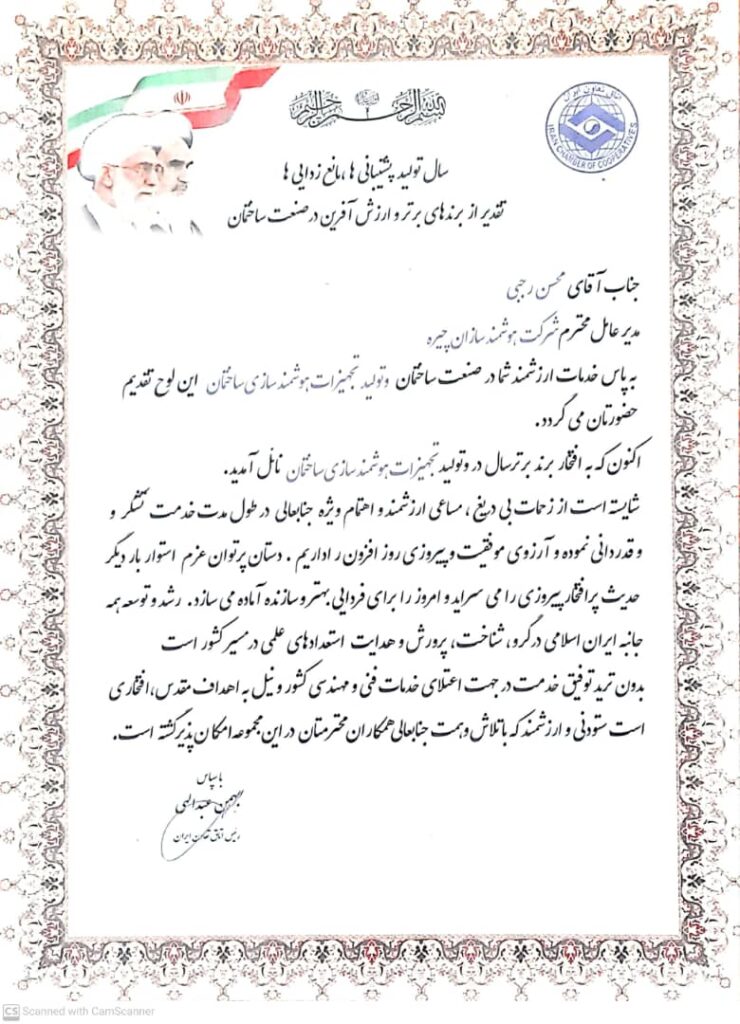 بسم الله الرحمن الرحیم
اتاق تعاون ایران
IRAN CHAMBER OF COOPERATIVES
سال تولید، پشتیبانی ها، مانع زدایی ها
تقدیر از برندهای برتر و ارزش آفرین در صنعت ساختمان
جناب آقای محسن رجبی
مدیر عامل محترم شرکت هوشمند سازان چیره
به پاس خدمات ارزشمند شما در صنعت ساختمان وتولید تجهیزات هوشمند سازی ساختمان این لوح تقدیم
حضورتان می گردد.
اکنون که به افتخار برند برتر سال در وتولید تجهیزات هوشمند سازی ساختمان نائل آمدید.
شایسته است از زحمات بی دریغ، مساعی ارزشمند و اهتمام ویژه جنابعالی در طول مدت خدمت تشکر و
و قدردانی نموده و آرزوی موفقیت و پیروزی روز افزون را داریم. دستان پرتوان عزم استوار بار دیگر
حدیث پرافتخار پیروزی را می سراید و امروز را برای فردایی بهتر و سازنده آماده می سازد. رشد و توسعه همه
جانبه ایران اسلامی در گرو، شناخت، پرورش و هدایت استعدادهای علمی در مسیر کشور است
بدون تردید توفیق خدمت در جهت اعتلای خدمات فنی و مهندسی کشور و نیل به اهداف مقدس، افتخاری
است ستودنی و ارزشمند که با تلاش و همت جنابعالی همکاران محترمتان در این مجموعه امکان پذیر گشته است.
با سپاس
بهمن عبدالهی
رئیس اتاق تعاون ایران
CS Scanned with CamScanner